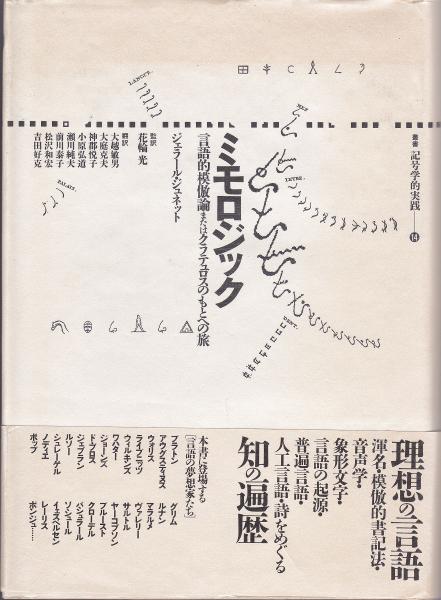 叢書 記号学的実践 14
ミモロジック
言語的模倣論またはクラテュロスのもとへの旅
ジェラール・ジュネット
監訳
花輪 光
翻訳
大越敏男
大庭克夫
神郡悦子
小原弘道
瀬川純夫
前川泰子
松沢和宏
吉田好克
LANGUE.
NEZ
LETRE.
PALAIS.
VENT.
理想の言語
渾名・模倣的書記法・
音声学・
象形文字・
言語の起源・
普遍言語・
人工言語・詩をめぐる
知の遍歴
本書に登場する
[言語の夢想家たち]
プラトン
アウグスティヌス
ウォリス
ライプニッツ
ウィルキンズ
ワハター
ジョーンズ
ド・ブロス
ジェブラン
ルソー
シュレーゲル
ノディエ
ボップ
グリム
ルナン
マラルメ
ヴァレリー
サルトル
ヤーコブソン
プルースト
クローデル
バシュラール
ソシュール
イェスペルセン
レーリス
ポンジュ……